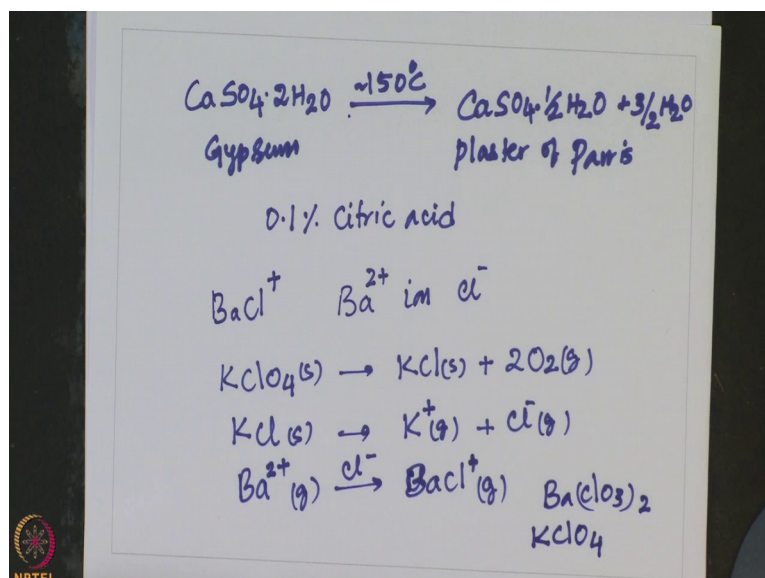 CaSO4·2H2O ~150°C → CaSO4·½H2O + 3/2 H2O
Gypsum Plaster of Parris
0.1% Citric acid
BaCl⁺ Ba²⁺ in Cl⁻
KClO4(s) → KCl(s) + 2O2(g)
KCl(s) → K⁺(g) + Cl⁻(g)
Ba²⁺(g) Cl⁻ → BaCl⁺(g) Ba(ClO3)2
KClO4
NPTEL